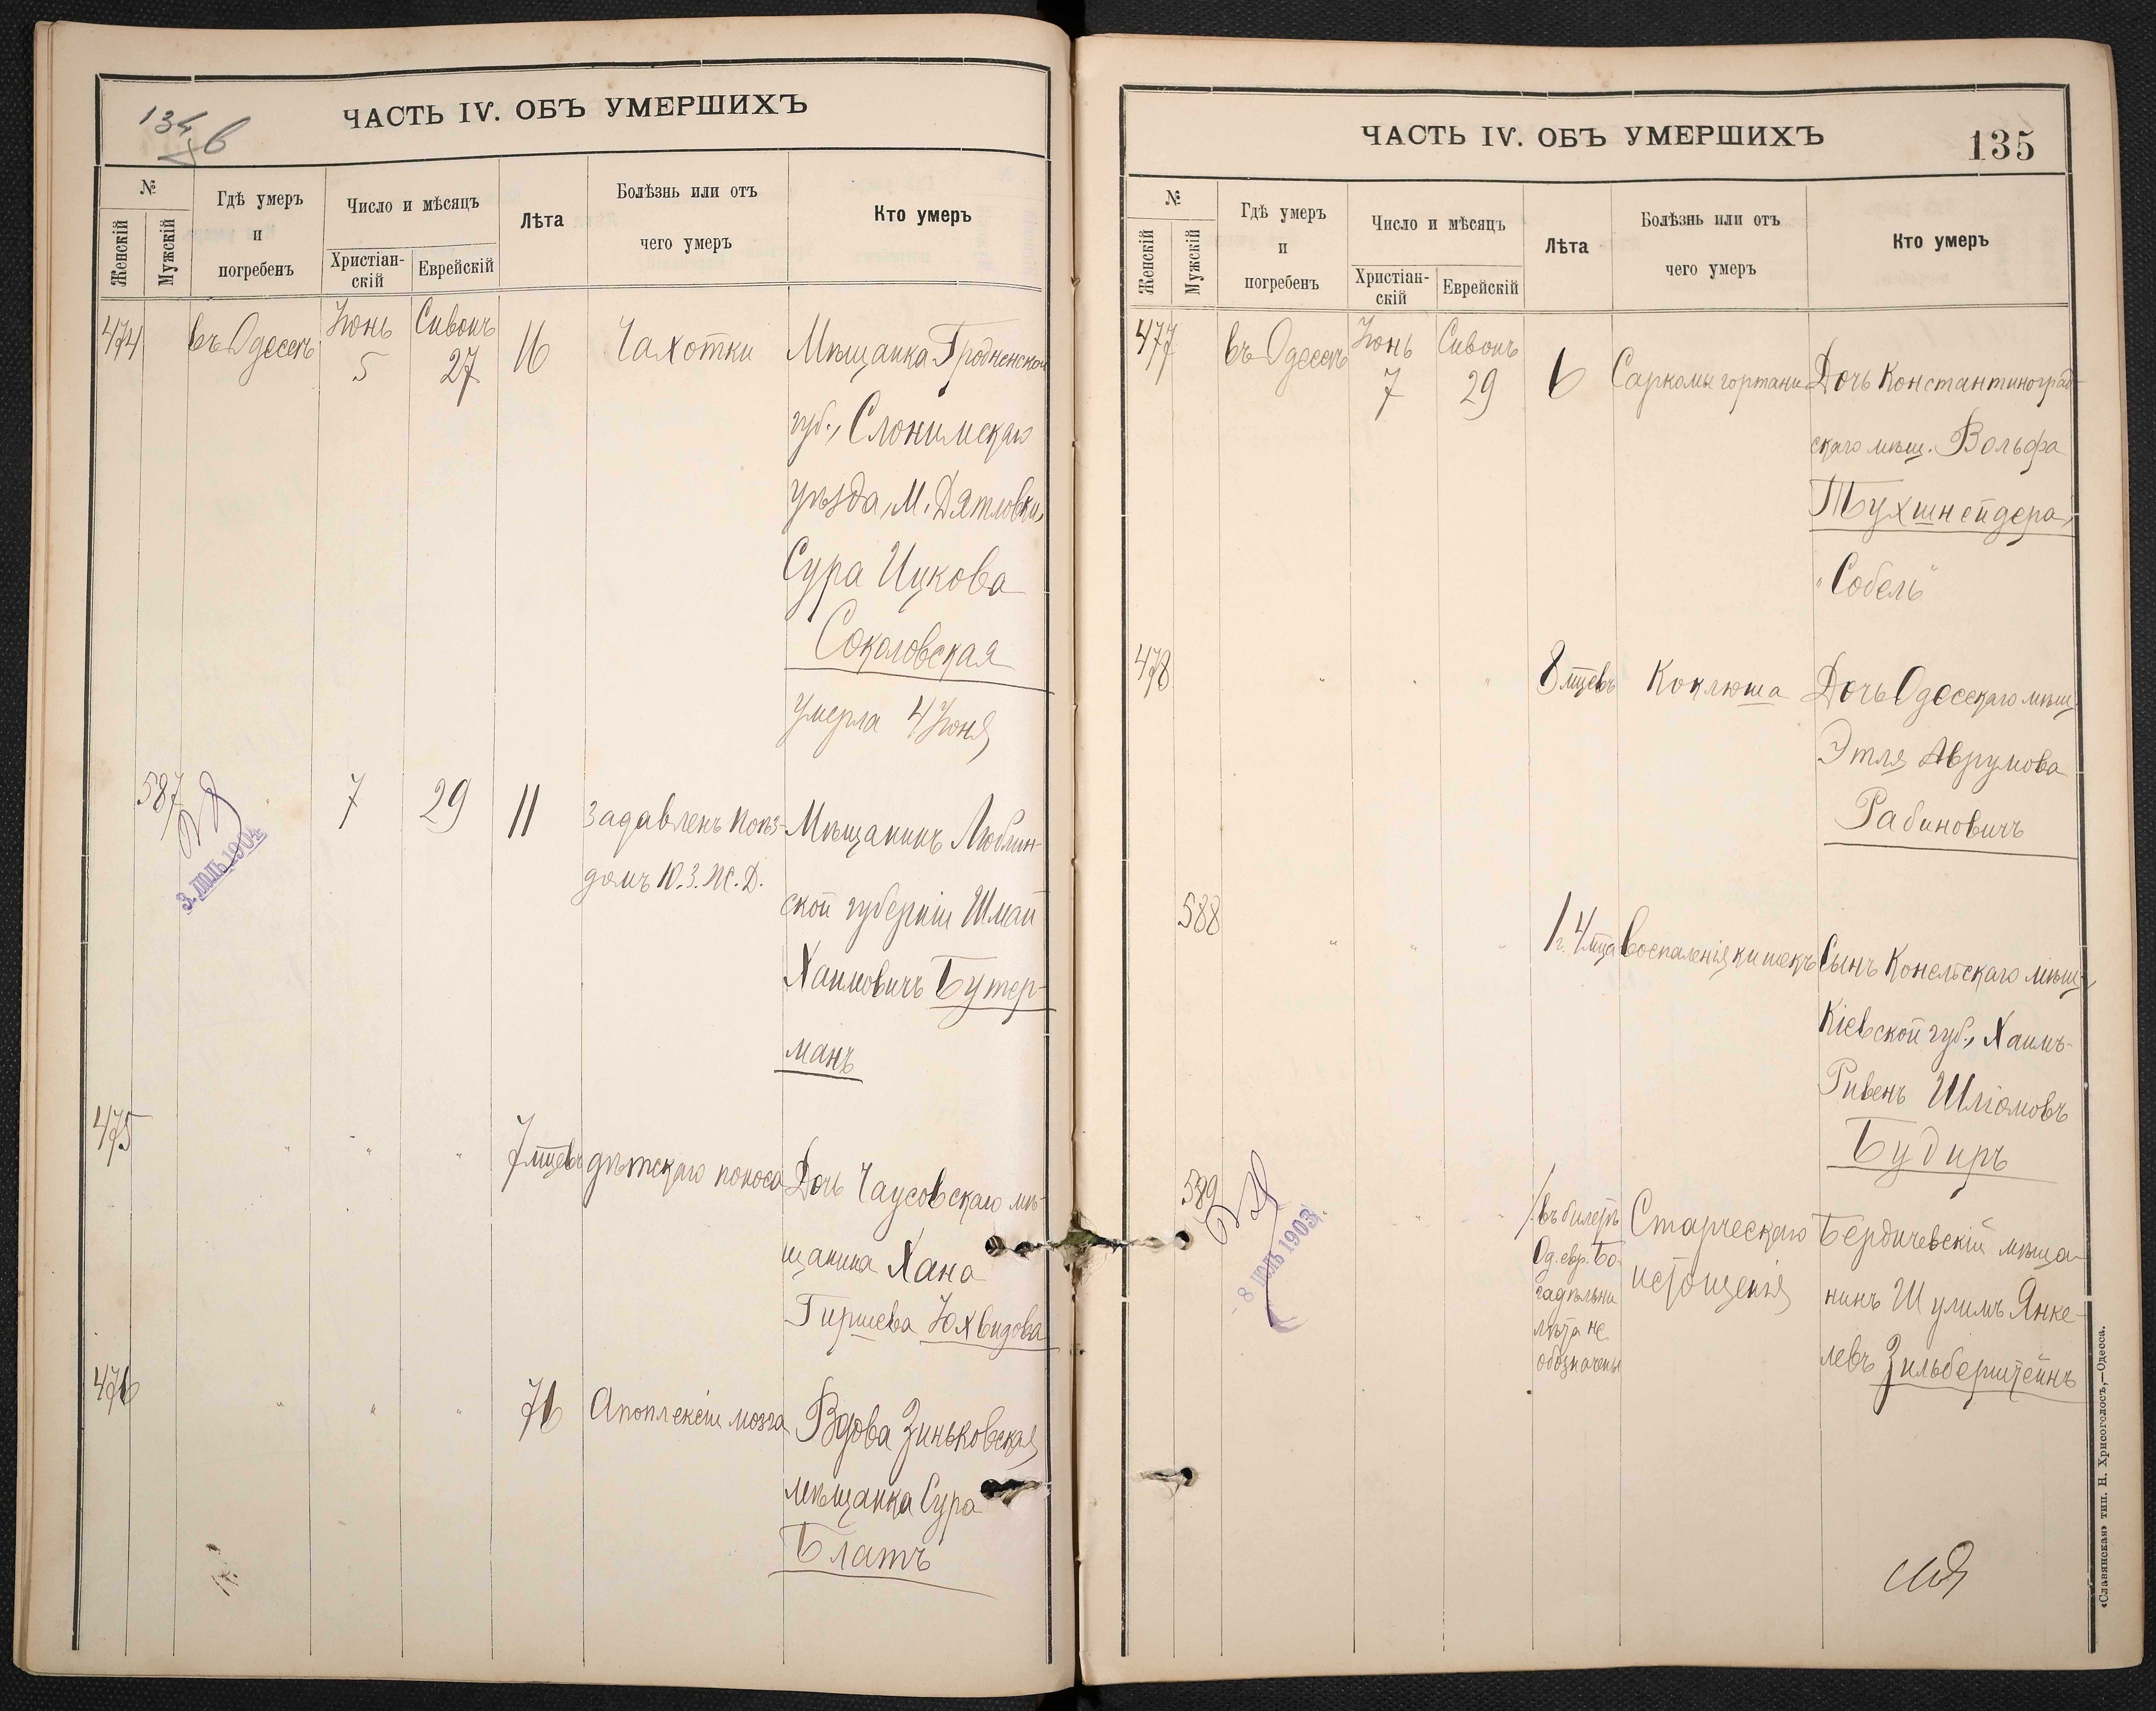 134 об
ЧАСТЬ IV. ОБЪ УМЕРШИХЪ
№
Женскій
Мужскій
Гдѣ умеръ
и
погребенъ
Число и мѣсяцъ
Христіан-
скій
Еврейскій
Лѣта
Болѣзнь или отъ
чего умеръ
Кто умеръ
474 въ Одессѣ Іюнь 5 Сивонъ 27 16 Чахотки Мѣщанка Гродненской
губ., Слонимскаго
уѣзда, М. Дятловки,
Сура Ицкова
Соколовская
умерла 4 Іюня
587 " 7 29 11 Задавленъ поѣз- Мѣщанинъ Люблин-
домъ Ю.З.Ж.Д.
ской губерніи Шмай
Хаимовичъ Бутер-
манъ
3. ІЮЛЬ 1904
475 " " " 7 мцевъ дѣтскаго поноса Дочь Чаусовскаго мѣ-
щанина Хана
Гиршева Юхвидова
476 " " " 76 Апоплексіи мозга Вдова Зиньковская
мѣщанка Сура
Блатъ
ЧАСТЬ IV. ОБЪ УМЕРШИХЪ
135
№
Женскій
Мужскій
Гдѣ умеръ
и
погребенъ
Число и мѣсяцъ
Христіан-
скій
Еврейскій
Лѣта
Болѣзнь или отъ
чего умеръ
Кто умеръ
477 въ Одессѣ Іюнь 7 Сивонъ 29 6 Саркомы гортани Дочь Константиноград-
скаго мѣщ. Вольфа
Тухшнейдера,
"Собель"
478 " " " 8 мцевъ Коклюша Дочь Одесскаго мѣщ.
Этля Аврумова
Рабиновичъ
588 " " " 1 г. 4 мца Воспаленія кишекъ Сынъ Конельскаго мѣщ.,
Кіевской губ., Хаимъ-
Ривенъ Шліомовъ
Будиръ
589 " " /въ билетѣ
Од. евр. Бо-
гадѣльни
лѣта не
обозначены
Старческаго
истощенія
Бердичевскій мѣща-
нинъ Шулимъ Янке-
левъ Зильберштейнъ
- 8 ІЮЛЬ 1903
«Славянская» тип. Н. Хрисогелосъ,—Одесса.